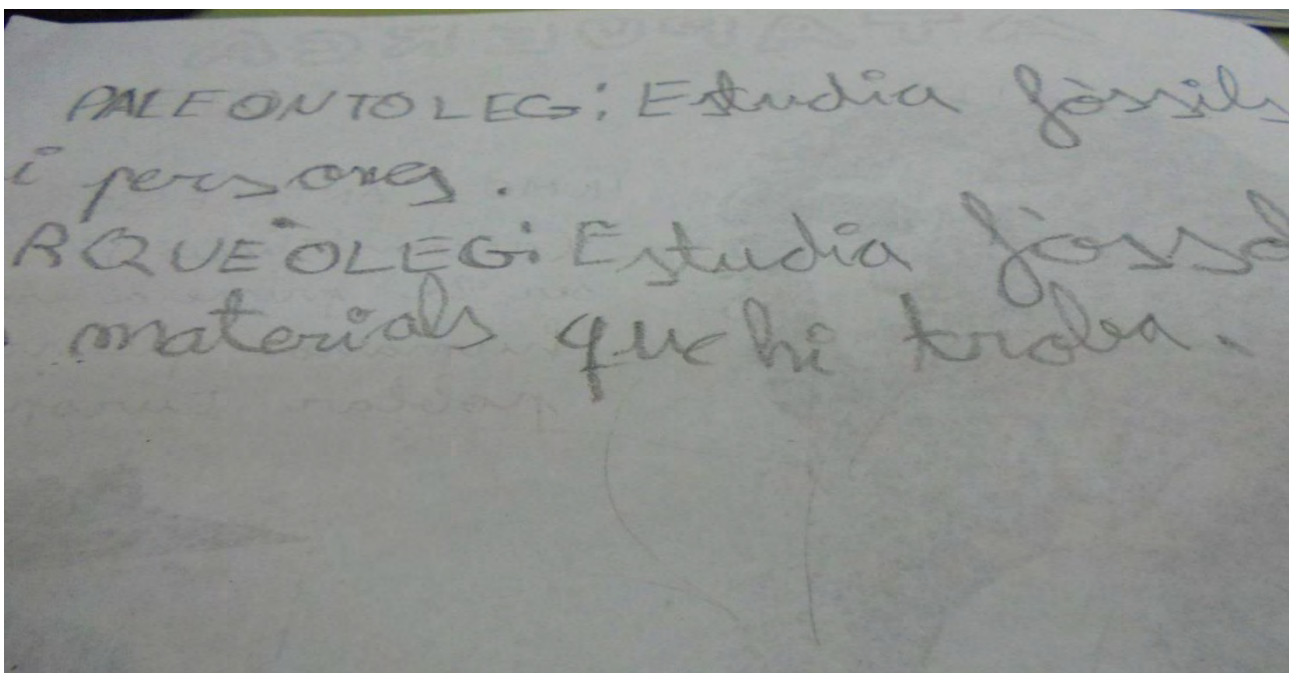 PALEONTOLEG: Estudia fòssils
i persones.
ARQUEÒLEG: Estudia
materials que hi troba.